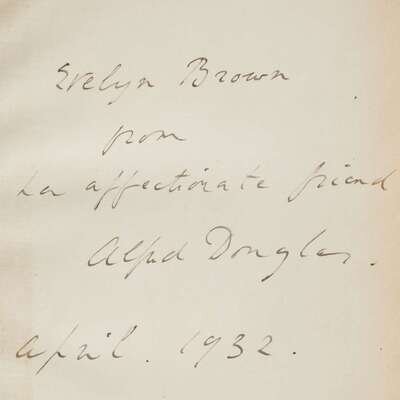 Evelyn Brown
from
her affectionate friend
Alfred Douglas.
April. 1932.